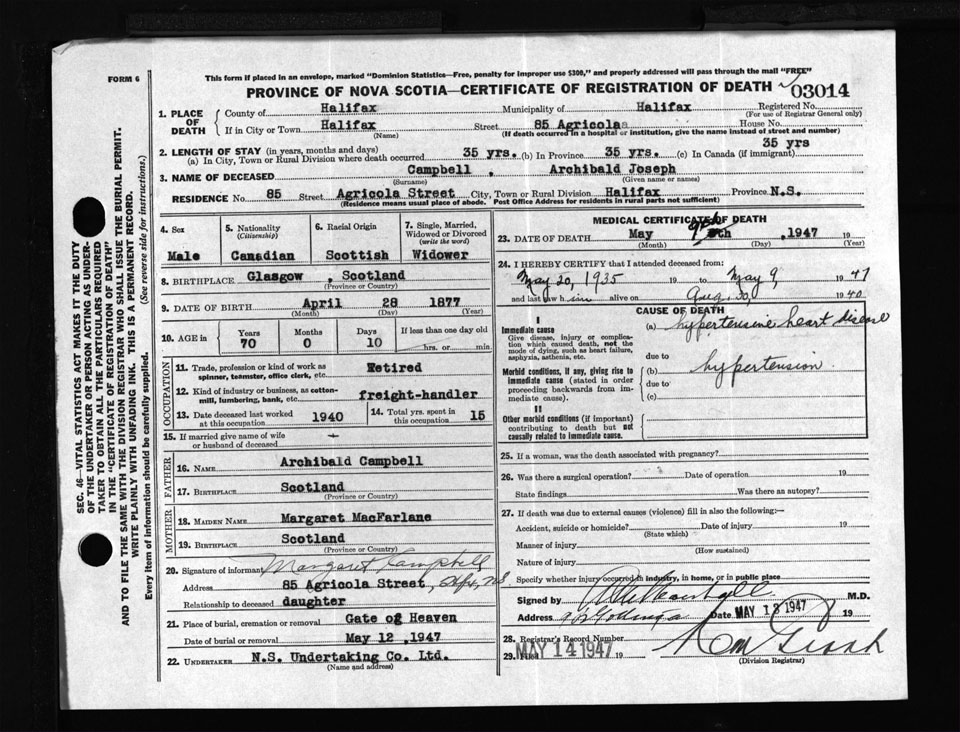 FORM 6
This form if placed in an envelope, marked "Dominion Statistics—Free, penalty for improper use $300," and properly addressed will pass through the mail "FREE"
PROVINCE OF NOVA SCOTIA—CERTIFICATE OF REGISTRATION OF DEATH
03014
1. PLACE OF DEATH
County of Halifax Municipality of Halifax Registered No.
(For use of Registrar General only)
If in City or Town Halifax Street 85 Agricola House No.
(Name) (If death occurred in a hospital or institution, give the name instead of street and number)
2. LENGTH OF STAY (in years, months and days)
(a) In City, Town or Rural Division where death occurred 35 yrs. (b) In Province 35 yrs. (c) In Canada (if immigrant) 35 yrs
3. NAME OF DECEASED Campbell , Archibald Joseph
(Surname) (Given name or names)
RESIDENCE No. 85 Street Agricola Street City, Town or Rural Division Halifax Province N.S.
(Residence means usual place of abode. Post Office Address for residents in rural parts not sufficient)
4. Sex
Male
5. Nationality
(Citizenship)
Canadian
6. Racial Origin
Scottish
7. Single, Married, Widowed or Divorced
(write the word)
Widower
8. BIRTHPLACE Glasgow , Scotland
(Province or Country)
9. DATE OF BIRTH April 28 1877
(Month) (Day) (Year)
10. AGE in
Years Months Days If less than one day old
70 0 10 hrs. or min.
OCCUPATION
11. Trade, profession or kind of work as spinner, teamster, office clerk, etc. Retired
12. Kind of industry or business, as cotton-mill, lumbering, bank, etc. freight-handler
13. Date deceased last worked at this occupation 1940
14. Total yrs. spent in this occupation 15
15. If married give name of wife or husband of deceased
FATHER
16. NAME Archibald Campbell
17. BIRTHPLACE Scotland
(Province or Country)
MOTHER
18. MAIDEN NAME Margaret MacFarlane
19. BIRTHPLACE Scotland
(Province or Country)
20. Signature of informant Margaret Campbell
Address 85 Agricola Street, Hfx, N.S
Relationship to deceased daughter
21. Place of burial, cremation or removal Gate of Heaven
Date of burial or removal May 12 ,1947
22. UNDERTAKER N.S. Undertaking Co. Ltd.
(Name and address)
MEDICAL CERTIFICATE OF DEATH
23. DATE OF DEATH May 9th ,1947 19
(Month) (Day) (Year)
24. I HEREBY CERTIFY that I attended deceased from:
May 20, 1935 19 to May 9, 1947
and last saw him alive on Aug. 30, 1940
CAUSE OF DEATH
I
Immediate cause
Give disease, injury or complication which caused death, not the mode of dying, such as heart failure, asphyxia, asthenia, etc.
(a) hypertensive heart disease
due to
Morbid conditions, if any, giving rise to immediate cause (stated in order proceeding backwards from immediate cause).
(b) hypertension
due to
(c)
II
Other morbid conditions (if important) contributing to death but not causally related to immediate cause.
25. If a woman, was the death associated with pregnancy?
26. Was there a surgical operation? Date of operation 19
State findings Was there an autopsy?
27. If death was due to external causes (violence) fill in also the following:—
Accident, suicide or homicide? Date of injury 19
(State which)
Manner of injury
(How sustained)
Nature of injury
Specify whether injury occurred in industry, in home, or in public place
Signed by M.D.
Address Date MAY 13 1947 19
28. Registrar's Record Number
29. Filed MAY 14 1947 19
(Division Registrar)
SEC. 46—VITAL STATISTICS ACT MAKES IT THE DUTY OF THE UNDERTAKER OR PERSON ACTING AS UNDERTAKER TO OBTAIN ALL THE PARTICULARS REQUIRED IN THE "CERTIFICATE OF REGISTRATION OF DEATH"
AND TO FILE THE SAME WITH THE DIVISION REGISTRAR WHO SHALL ISSUE THE BURIAL PERMIT.
WRITE PLAINLY WITH UNFADING INK. THIS IS A PERMANENT RECORD.
Every item of information should be carefully supplied. (See reverse side for instructions.)